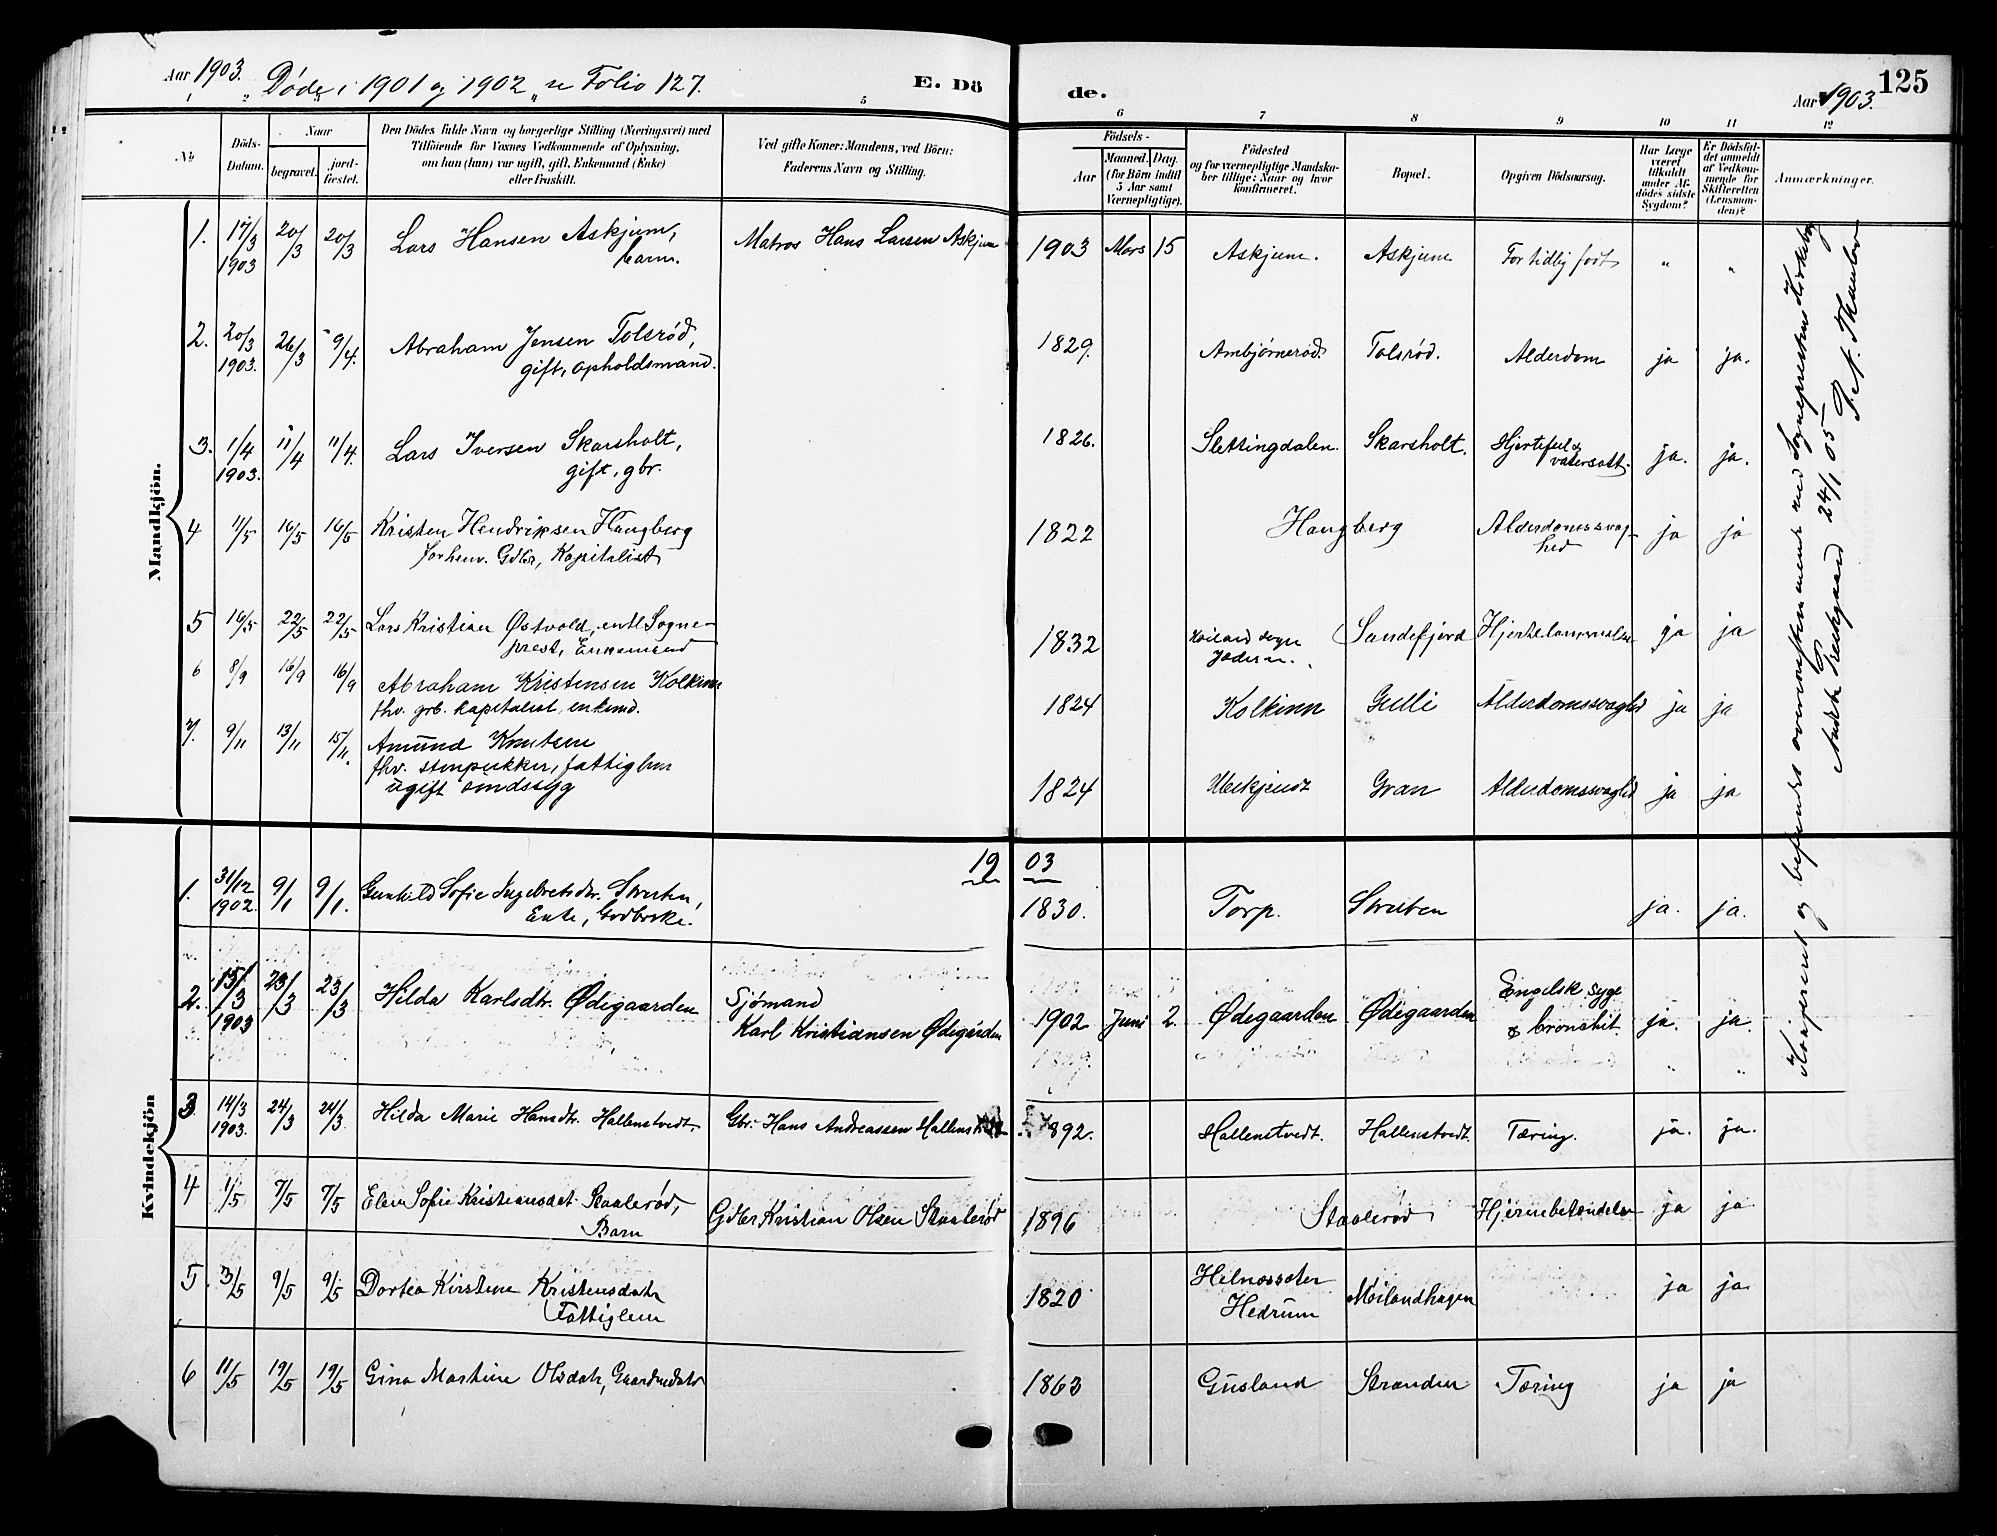 Aar 1903. Døde i 1901 og 1902, se Folio 127. E. Dö de. Aar 1903. 125
1 2 3 5 6 7 8 9 10 11 12
No
Döds-Datum.
Naar
begravet.
jord-fæstet.
Den Dödes fulde Navn og borgerlige Stilling (Næringsvei) med
Tilföiende for Voxnes Vedkommende af Oplysning,
om han (hun) var ugift, gift, Enkemand (Enke)
eller fraskilt.
Ved gifte Koner: Mandens, ved Börn:
Faderens Navn og Stilling.
Födsels-
Aar
Maaned. Dag.
(for Börn indtil
5 Aar samt
Værnepligtige).
Födested
og for værnepligtige Mandska-
ber tillige: Naar og hvor
konfirmeret.
Bopæl.
Opgiven Dödsaarsag.
Har Læge
været
tilkaldt
under Af-
dödes sidste
Sygdom?
Er Dödsfal-
det anmeldt
af Vedkom-
mende for
Skifteretten
(Lensman-
den)?
Anmærkninger.
Mandkjön.
1. 17/3 1903 20/3 20/3 Lars Hansen Askjum, Matros Hans Larsen Askjum 1903 Mars 15 Askjum. Askjum For tidlig født " "
barn.
2. 20/3 1903. 26/3 9/4. Abraham Jensen Tolsrød, 1829. Ambjørnerød Tolsrød. Alderdom ja ja.
gift, opholdsmand.
3. 1/4 1903. 11/4 11/4. Lars Iversen Skarsholt, 1826. Slettingdalen. Skarsholt. Hjertefeil & ja. ja.
gift, gbr. vatersott.
4 11/5 16/5 16/5 Kristen Hendriksen Haugberg 1822 Haugberg Alderdomssvag- ja ja
forhenv. Gdbr, Kapitalist hed
5 16/5 22/5 22/5 Lars Kristian Østvold, entl Sogne- 1832 sogn Sandefjord Hjertelammelse ja ja
prest, Enkemand Jæderen.
6 8/9 16/9 16/9 Abraham Kristensen Kolkinn 1824 Kolkinn Gulli Alderdomssvaghed ja ja
fhv. grb. kapitalist, enkemd.
7. 9/11 13/11 15/11. Amund Knutsen
fhv. stenpukker, fattiglem
ugift sindssyg 1824 Ubekjendt Gran Alderdomssvaghd ja ja
Kvindekjön
19 03
1. 31/12 1902. 9/1 9/1. Gunhild Sofie Ingebretsdtr. Struten, 1830. Torp. Struten ja. ja.
Enke, Godbrske.
2. 15/3 1903 23/3 23/3 Hilda Karlsdtr. Ødegaarden Sjømand
Karl Kristiansen Ødegården 1902. Juni 2. Ødegaarden Ødegaarden Engelsk syge
& bronchit. ja. ja.
3 14/3 1903. 24/3 24/3. Hilda Marie Hansdtr. Hallenstvedt. Gbr. Hans Andreassen Hallenstvedt 1892. Hallenstvedt. Hallenstvedt. Tæring. ja. ja.
4 1/5 7/5 7/5 Elen Sofie Kristiansdat Staalerød, Gdbr Kristian Olsen Staalerød 1896 Staalerød Hjernebetændelse ja ja
Barn
5 3/5 9/5 9/5 Dortea Kirstine Kristensdatr 1820 Moilandhagen ja ja.
Fattiglem Hedrum
6 11/5 19/5 19/5 Gina Martine Olsdatr, Gaardmdatr 1863 Gusland Stranden Tæring ja ja
Konfereret og befundet overensstemmende med Sogneprestens Kirkebog
24/1 05